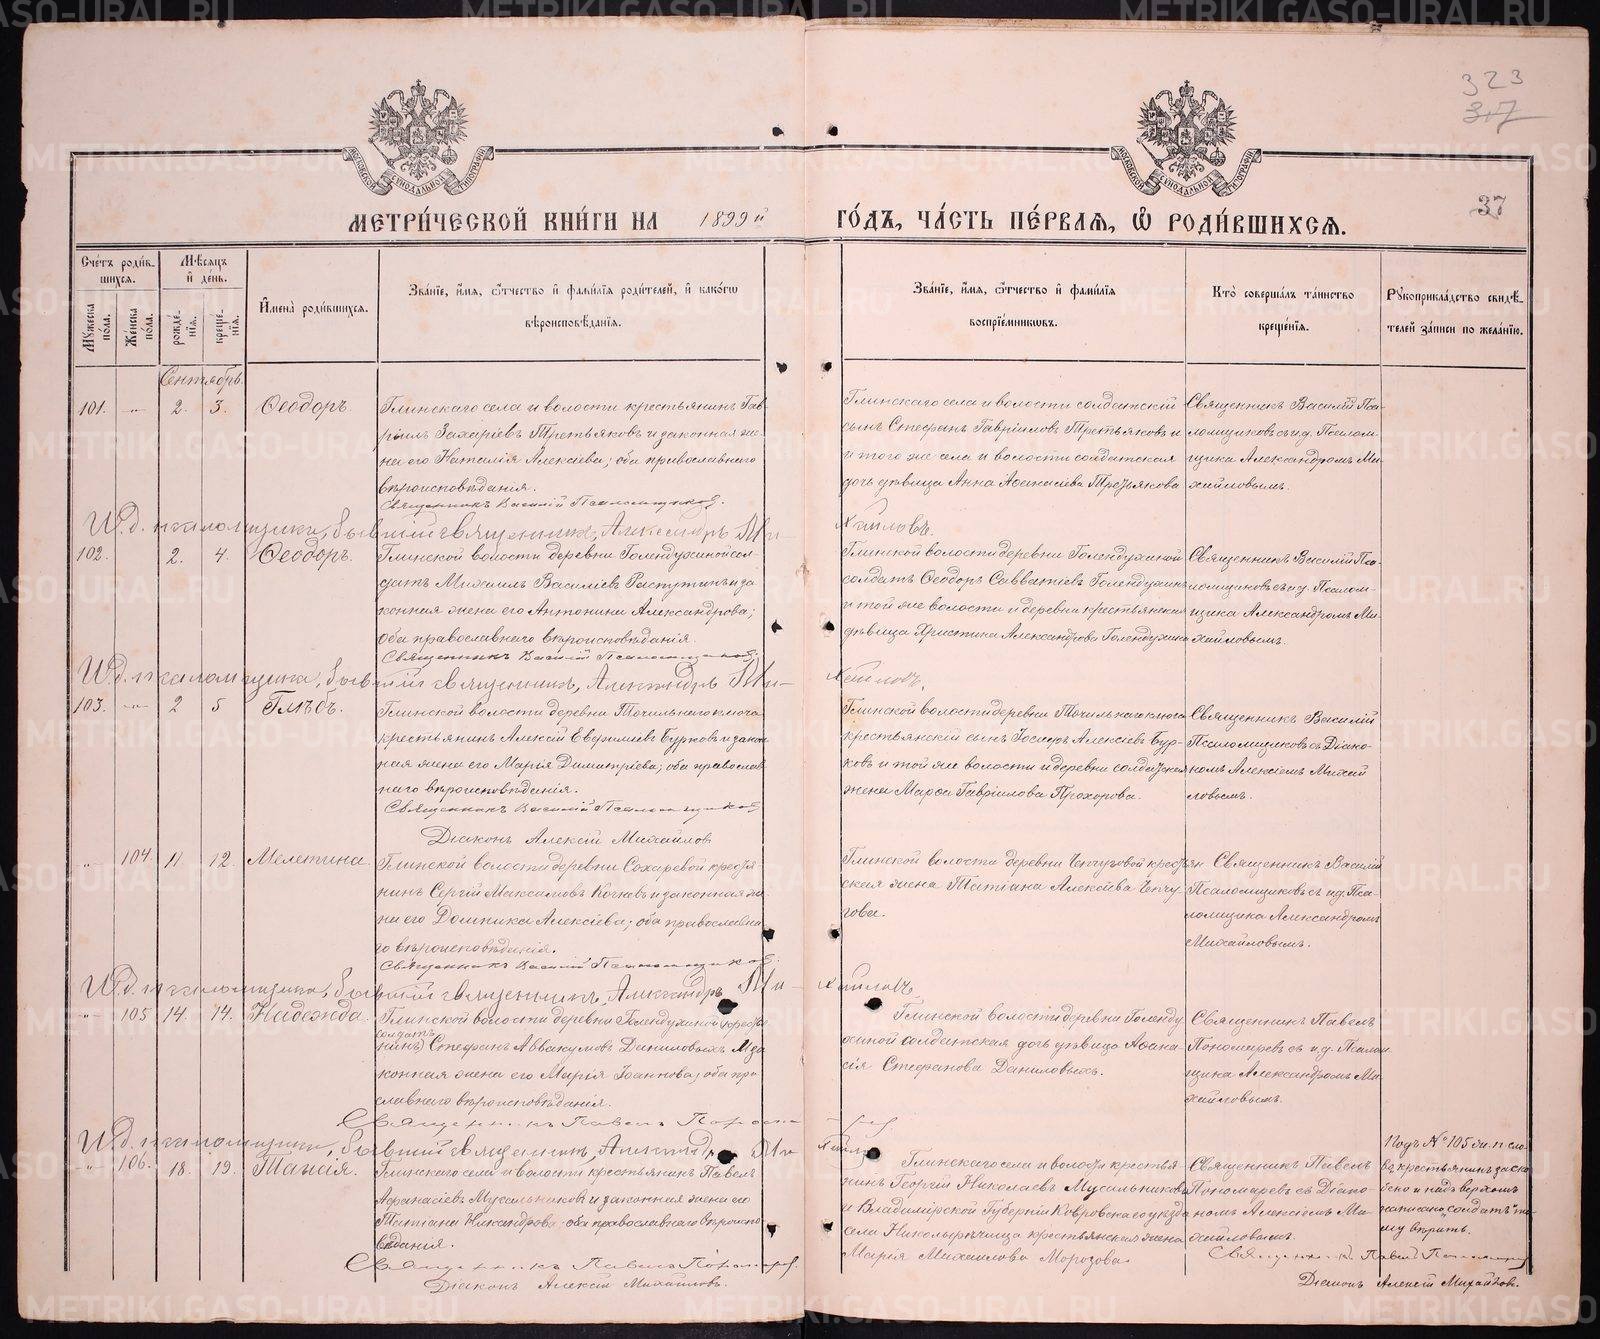 323
37
МЕТРИ́ЧЕСКОЙ КНИ́ГИ НА 1899й ГО́ДЪ, ЧА́СТЬ ПЕ́РВАЯ, Ѡ РОДИ́ВШИХСЯ.
37
Сче́тъ роди́вшихся.
Мѣ́сяцъ и де́нь.
Му́жеска по́ла.
Же́нска по́ла.
рожде́нїя.
креще́нїя.
Имена̀ роди́вшихся.
Зва́нїе, и́мя, о́тчество и фами́лїя роди́телей, и како́гѡ вѣроисповѣ́данїя.
Зва́нїе, и́мя, о́тчество и фами́лїя воспрїе́мникѡвъ.
Кто̀ соверша́лъ та́инство креще́нїя.
Рꙋкоприкла́дство свидѣ́телей за́писи по жела́нїю.
Сентябрь.
101. -"- 2. 3. Ѳеодоръ.
Глинскаго села и волости крестьянинъ Гав-
ріилъ Захаріевъ Третьяковъ и законная же-
на его Наталія Алексіева; оба православнаго
вѣроисповѣданія.
Священникъ Василій Псаломщиковъ.
Глинскаго села и волости солдатскій
сынъ Стефанъ Гавріиловъ Третьяковъ и
и того же села и волости солдатская
дочь дѣвица Анна Аѳанасіева Третьякова
Священникъ Василій Пса-
ломщиковъ съ и.д. Псалом-
щика Александромъ Ми-
хайловымъ.
И.д. псаломщика, бывшій священникъ, Александръ Михайловъ.
102. 2. 4. Ѳеодоръ.
Глинской волости деревни Голендухиной сол-
датъ Михаилъ Василіевъ Распутинъ и за
конная жена его Антонина Александрова;
оба православнаго вѣроисповѣданія
Священникъ Василій Псаломщиковъ.
Глинской волости деревни Голендухиной
солдатъ Ѳеодоръ Савватіевъ Голендухинъ
и той же волости и деревни крестьянская
дѣвица Христина Александрова Голендухина
Священникъ Василій Пса-
ломщиковъ съ и.д. Псалом-
щика Александромъ Ми-
хайловымъ.
И.д. псаломщика, бывшій священникъ, Александръ Михайловъ.
103. -"- 2 5 Глѣбъ.
Глинской волости деревни Точильнаго ключа
крестьянинъ Алексій Евѳиміевъ Бурковъ и закон
ная жена его Марія Димитріева; оба православ
наго вѣроисповѣданія.
Священникъ Василій Псаломщиковъ
Діаконъ Алексій Михайловъ
Глинской волости деревни Точильнаго ключа
крестьянскій сынъ Іосифъ Алексіевъ Бур-
ковъ и той же волости и деревни солдатская
жена Марѳа Гавріилова Прохорова.
Священникъ Василій
Псаломщиковъ съ Діако-
номъ Алексіемъ Михай
ловымъ.
" 104. 11. 12. Мелетина.
Глинской волости деревни Сохаревой крестья
нинъ Сергій Максимовъ и законная же
на его Домника Алексіева; оба православна
го вѣроисповѣданія.
Священникъ Василій Псаломщиковъ.
Глинской волости деревни Чепчуговой крестьян
ская жена Татіана Алексіева Чепчу
гова.
Священникъ Василій
Псаломщиковъ съ и.д. Пса-
ломщика Александромъ
Михайловымъ.
И.д. псаломщика, бывшій священникъ, Александръ Михайловъ
" 105 14. 14. Надежда.
Глинской волости деревни Голендухиной (крестья
солдатъ
нинъ) Стефанъ Аввакумовъ Даниловыхъ и за
конная жена его Марія Іоаннова; оба пра
славнаго вѣроисповѣданія.
Священникъ Павелъ Пономаревъ
Глинской волости деревни Голенду
хиной солдатская дочь дѣвица Аѳана
сія Стефанова Даниловыхъ.
Священникъ Павелъ
Пономаревъ съ и.д. Псалом
щика Александромъ Ми-
хайловымъ.
И.д. псаломщика, бывшій священникъ, Александръ Михайловъ
" 106. 18. 19. Таисія.
Глинскаго села и волости крестьянинъ Павелъ
Аѳанасіевъ Мусальниковъ и законная жена его
Татіана Александрова; оба православнаго вѣроиспо
вѣданія.
Священникъ Павелъ Пономаревъ
Діаконъ Алексій Михайловъ.
Глинскаго села и волости крестья
нинъ Георгій Николаевъ Мусальниковъ
и Владимірской Губерніи Ковровскаго уѣзда
села крестьянская жена
Марія Михаилова Морозова.
Священникъ Павелъ
Пономаревъ съ Діако-
номъ Алексіемъ Ми-
хайловымъ.
Подъ № 105 ж. п. сло
въ крестьянинъ заско
блено и надъ верхомъ
написано "солдатъ" то
му вѣрить.
Священникъ Павелъ Пономаревъ
Діаконъ Алексій Михайловъ.
METRIKI.GASO-URAL.RU